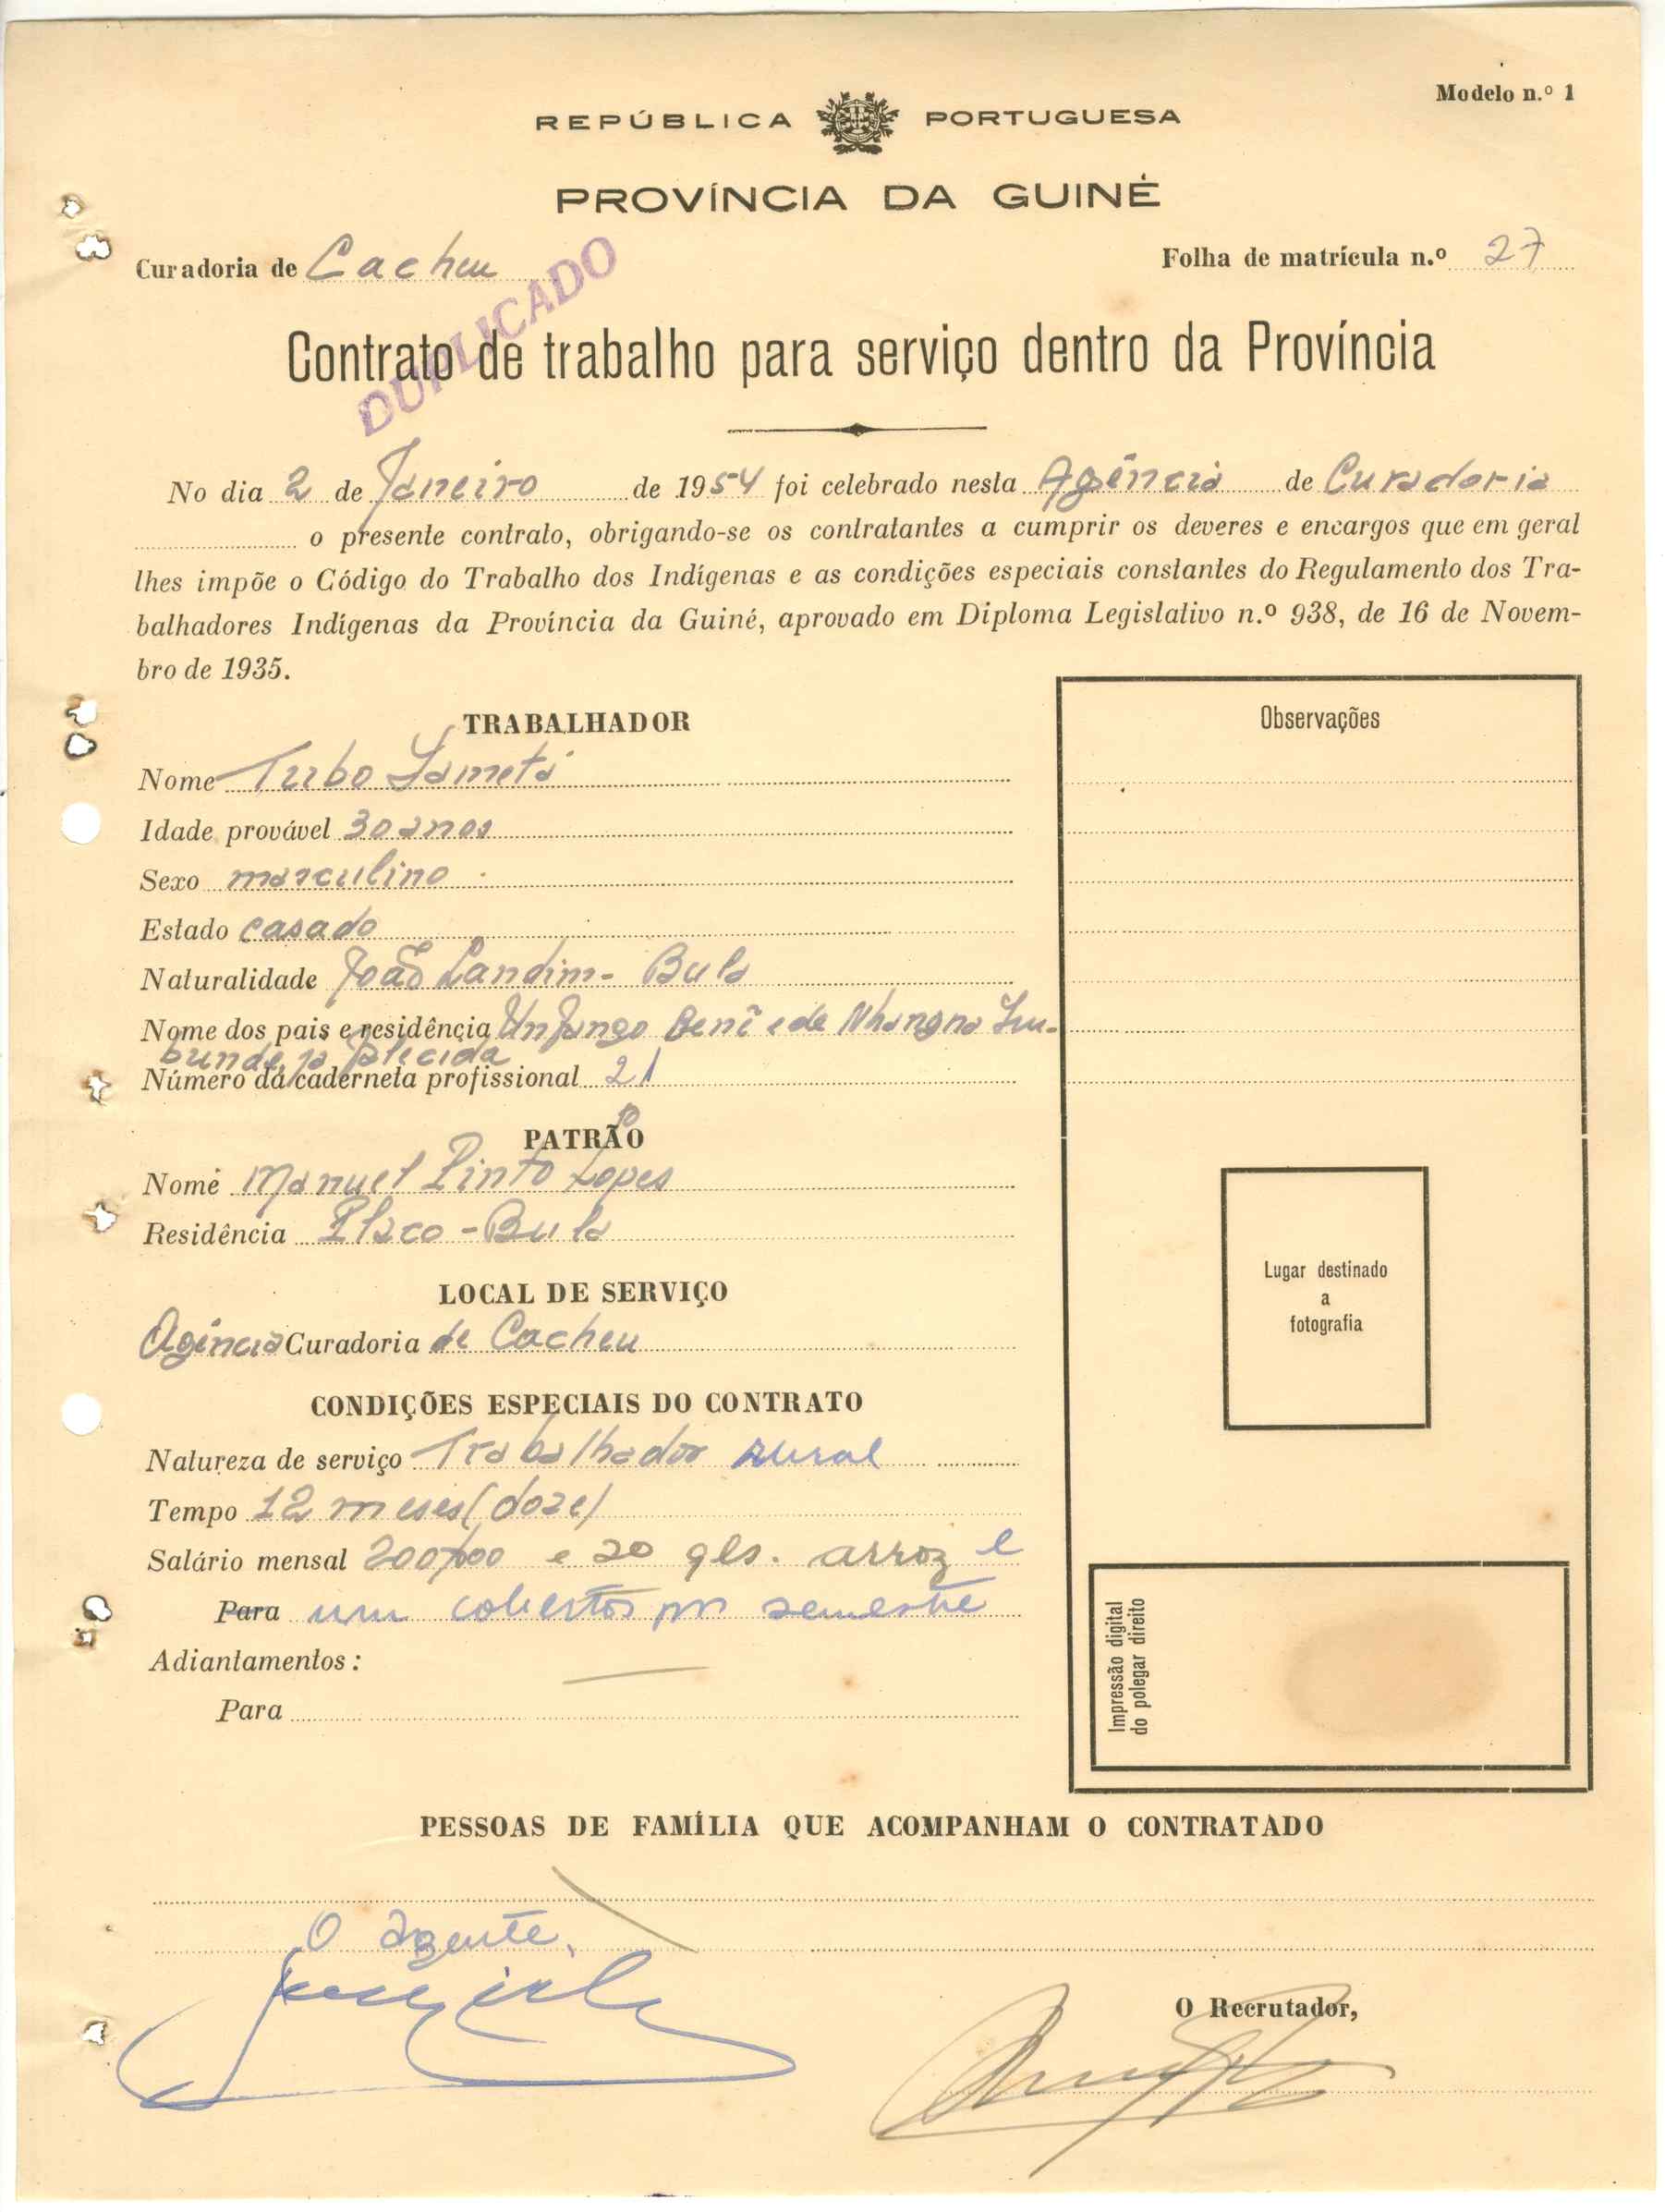 Modelo n.º 1
REPÚBLICA PORTUGUESA
PROVÍNCIA DA GUINÉ
Curadoria de Cacheu
Folha de matrícula n.º 27
DUPLICADO
Contrato de trabalho para serviço dentro da Província
No dia 2 de Janeiro de 1954 foi celebrado nesta Agência de Curadoria
o presente contrato, obrigando-se os contratantes a cumprir os deveres e encargos que em geral
lhes impõe o Código do Trabalho dos Indígenas e as condições especiais constantes do Regulamento dos Tra-
balhadores Indígenas da Província da Guiné, aprovado em Diploma Legislativo n.º 938, de 16 de Novem-
bro de 1935.
TRABALHADOR
Observações
Nome Tubo
Idade provável 30 anos
Sexo masculino
Estado casado
Naturalidade João Landim - Bula
Nome dos pais e residência e de
já falecida
Número da caderneta profissional 21
PATRÃO
Nome Manuel Pinto Lopes
Residência Placo - Bula
LOCAL DE SERVIÇO
Agência Curadoria de Cacheu
Lugar destinado
a
fotografia
CONDIÇÕES ESPECIAIS DO CONTRATO
Natureza de serviço Trabalhador rural
Tempo 12 meses (doze)
Salário mensal 200$00 e 20 qls. arroz e
Para um cobertos por semestre
Adiantamentos:
Para
Impressão digital
do polegar direito
PESSOAS DE FAMÍLIA QUE ACOMPANHAM O CONTRATADO
O agente,
O Recrutador,